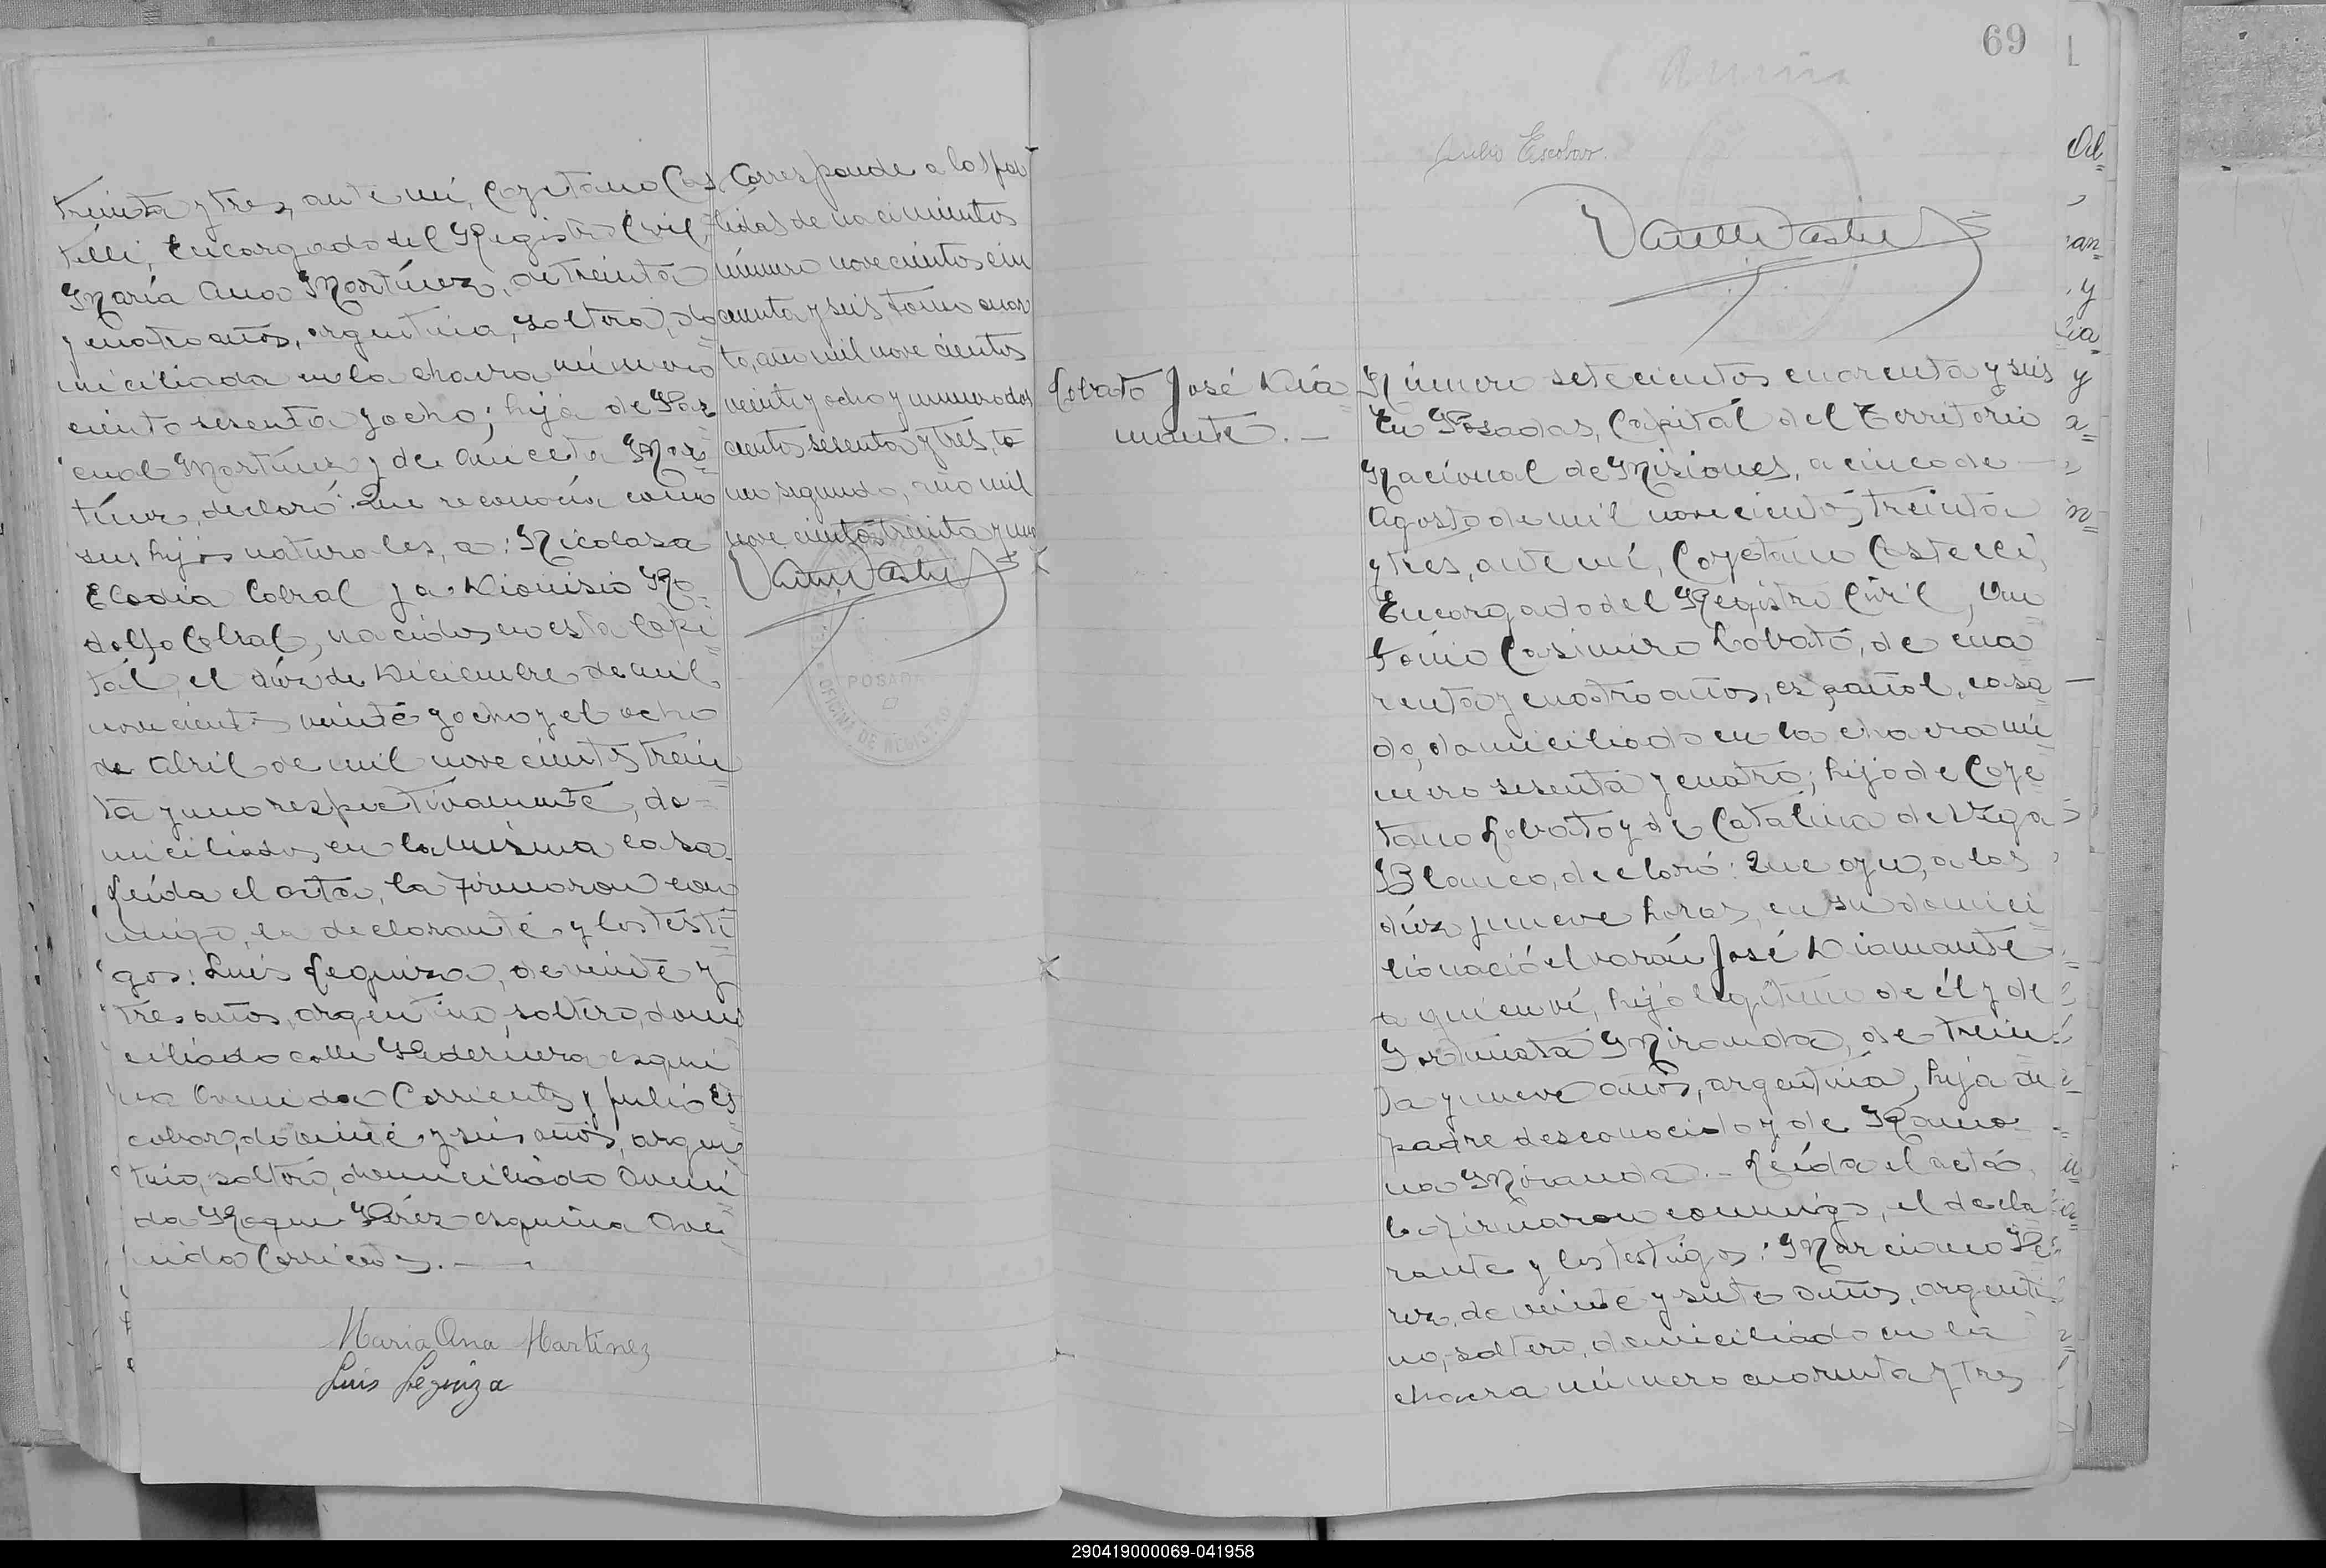 treinta y tres, ante mí, Cayetano Cas
telli, Encargado del Registro Civil,
María Ana Martínez, de treinta
y cuatro años, argentina, soltera, do
miciliada en la chacra número
ciento sesenta y ocho; hija de Pas
cual Martínez y de Aniceta Mar
tínez, declaró: Que reconocía como
sus hijos naturales, a: Nicolasa
Elodia Cabral y a Dionisio Ro
dolfo Cabral, nacidos en esta Capi
tal, el diez de Diciembre de mil
novecientos veinte y ocho y el ocho
de Abril de mil novecientos trein
ta y uno respectivamente, do-
miciliados en la misma casa.
Leída el acta, la firmaron con
migo, la declarante y los testi
gos: Luis Leguiza, de veinte y
tres años, argentino, soltero, domi
ciliado calle Pedernera esqui
na Avenida Corrientes y Julio Es
cobar, de veinte y seis años, argen
tino, soltero, domiciliado Aveni
da Roque Pérez esquina Ave
nida Corrientes.
Maria Ana Martínez
Luis Leguiza
Corresponde a las par
tidas de nacimientos
número novecientos cin
cuenta y seis, tomo cuar
to, año mil novecientos
veinte y ocho y número dos
cientos sesenta y tres, to
mo segundo, año mil
novecientos treinta y uno
POSADAS
OFICINA DE REGISTRO
69
Julio Escobar.
Lobato José Dia
mante.-
Número setecientos cuarenta y seis
En Posadas, Capital del Territorio
Nacional de Misiones, a cinco de
Agosto de mil novecientos treinta
y tres, ante mí, Cayetano Castelli,
Encargado del Registro Civil, An
tonio Casimiro Lobato, de cua
renta y cuatro años, español, casa
do, domiciliado en la chacra nú
mero sesenta y cuatro; hijo de Caye
tano Lobato y de Catalina de Vega
Blanco, declaró: Que ayer, a las
diez y nueve horas, en su domici
lio nació el varón José Diamante
a quien ví, hijo legítimo de él y de
Fortunata Miranda, de trein
ta y nueve años, argentina, hija de
padre desconocido y de Ramo
na Miranda.- Leída el acta,
la firmaron conmigo, el decla
rante y los testigos: Marciano Pé
rez, de veinte y siete años, argenti
no, soltero, domiciliado en la
chacra número cuarenta y tres
290419000069-041958